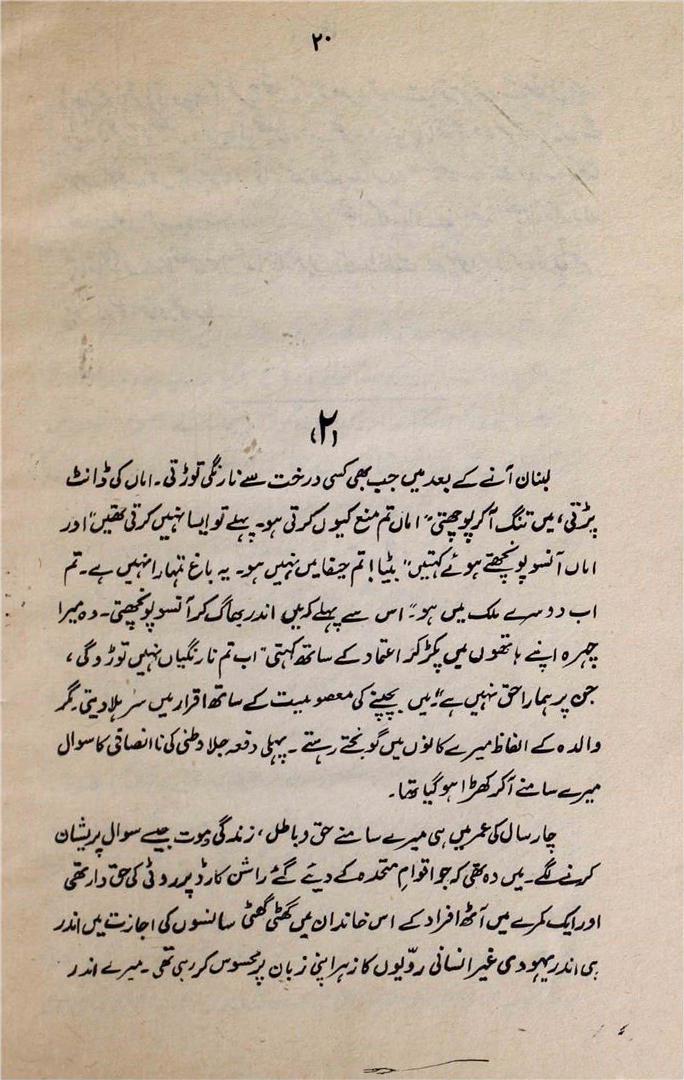 ۲۰
(۲)
لبنان آنے کے بعد میں جب بھی کسی درخت سے نارنگی توڑتی۔ اماں کی ڈانٹ
پڑتی، میں تنگ آکر پوچھتی "اماں تم منع کیوں کرتی ہو۔ پہلے تو ایسا نہیں کرتی تھیں" اور
اماں آنسو پونچھتے ہوئے کہتیں "بٹیا! تم حیفا میں نہیں ہو۔ یہ باغ تمہارا نہیں ہے۔ تم
اب دوسرے ملک میں ہو" اس سے پہلے کہ میں اندر بھاگ کر آنسو پونچھتی۔ وہ میرا
چہرہ اپنے ہاتھوں میں پکڑ کر اعتماد کے ساتھ کہتی "اب تم نارنگیاں نہیں توڑو گی،
جن پر ہمارا حق نہیں ہے" میں بچپنے کی معصومیت کے ساتھ اقرار میں سر ہلا دیتی۔ مگر
والدہ کے الفاظ میرے کانوں میں گونجتے رہتے۔ پہلی دفعہ جلا وطنی کی ناانصافی کا سوال
میرے سامنے آکر کھڑا ہو گیا تھا۔
چار سال کی عمر میں ہی میرے سامنے حق و باطل، زندگی و موت جیسے سوال پریشان
کرنے لگے۔ میں وہ تھی کہ جو اقوام متحدہ کے دیئے گئے راشن کارڈ پر روٹی کی حق دار تھی
اور ایک کمرے میں آٹھ افراد کے اس خاندان میں گھٹی گھٹی سانسوں کی اجازت میں اندر
ہی اندر یہودی غیر انسانی رویّوں کا زہر اپنی زبان پر محسوس کر رہی تھی۔ میرے اندر